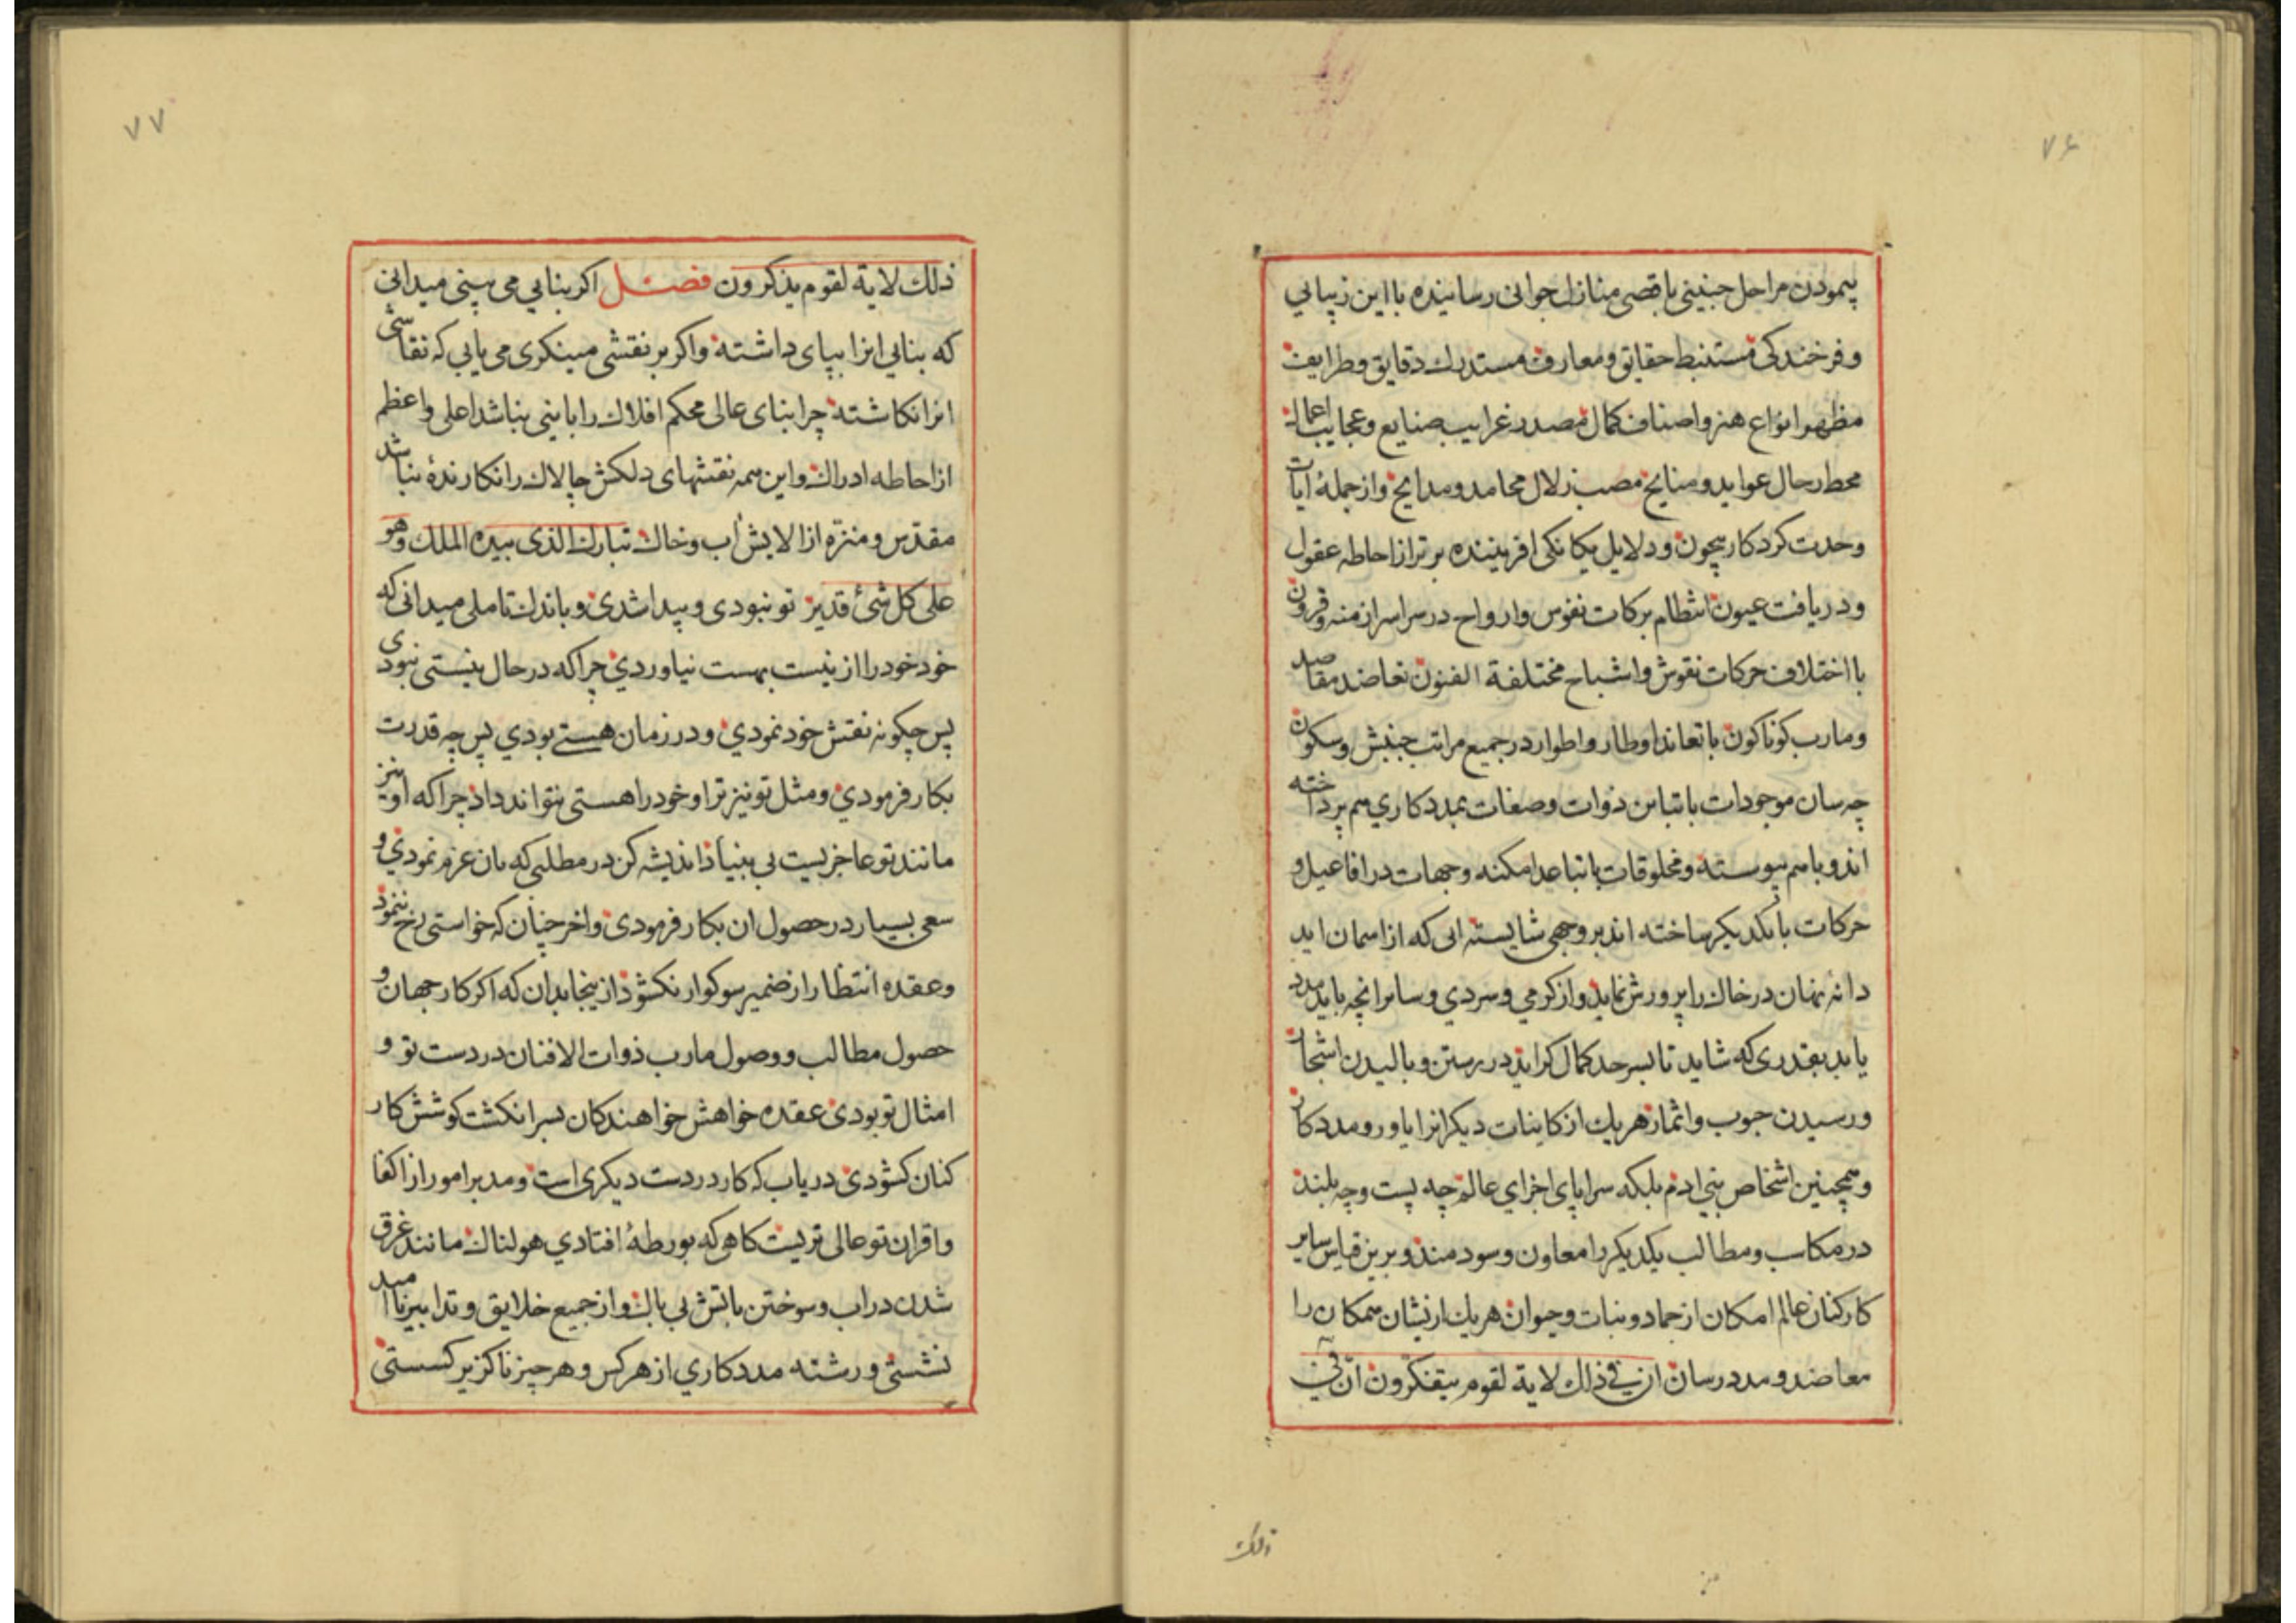 ۷۶
پیمودن مراحل جنینی باقصی منازل جوانی رساینده با این زیبایی
و فرخندکی مستنبط حقایق و معارف مستدرك دقایق و طرایف
مظهر انواع هنر و اصناف کمال مصدر غرایب صنایع و عجایب اعمال
محط رحال عواید و منایح مصب زلال محامد و مدایح و از جملهٔ ایات
وحدت کردکار بیچون و دلایل یکانکی افریننده برتر از احاطه عقول
و دریافت عیون انتظام برکات نفوس و ارواح در سراسر ازمنه و قرون
با اختلاف حرکات نقوش و اشباح مختلفة الفنون تعاضد مقاصد
و مارب کوناکون با تعاند اوطار و اطوار در جمیع مراتب جنبش و سکون
چه سان موجودات با تباین ذوات و صفات بمددکاري هم پرداخته
اند و باهم پیوسته و مخلوقات با تباعد امکنه و جهات در افاعیل و
حرکات با یکدیکر ساخته اند بر وجهی شایسته ابی که از اسمان اید
دانه نهان در خاك را پرورش نماید و از کرمي و سردي و سایر انچه باید مدد
یابد بقدری که شاید تا بسر حد کمال کراید در رستن و بالیدن اشجار
و رسیدن حبوب و اثمار هر یك از کاینات دیکر انرا یاور و مددکار
و همچنین اشخاص بني ادم بلکه سراپای اجزاي عالم چه پست و چه بلند
در مکاسب و مطالب یکدیکر را معاون و سودمند و برین قیاس سایر
کارکنان عالم امکان از جماد و نبات و حیوان هر یك ازیشان همکان را
معاضد و مددرسان ان في ذلك لایة لقوم یتفکرون ان في
ذلك
۷۷
ذلك لایة لقوم یذکرون فصل اکر بنایي می بینی میدانی
که بنایي انرا بپای داشته و اکر بر نقشی مینکری می یابي که نقاشی
انرا نکاشته چرا بنای عالی محکم افلاك را بانیی نباشد اعلی و اعظم
از احاطه ادراك و این همه نقشهای دلکش چالاك را نکارندهٔ نباشد
مقدس و منزه از الایش اب و خاك تبارك الذی بیده الملك وهو
علی کل شئ قدیر تو نبودی و پیدا شدی و باندك تاملی میدانی که
خود خود را از نیست بهست نیاوردي چرا که در حال نیستی نبودی
پس چکونه نقش خود نمودي و در زمان هستي بودي پس چه قدرت
بکار فرمودي و مثل تو نیز ترا و خود را هستی نتواند داد چرا که او نیز
مانند تو عاجزیست بي بنیاد اندیشه کن در مطلبی که بان عزم نمودي و
سعی بسیار در حصول ان بکار فرمودی و اخر چنان که خواستی رخ ننمود
و عقده انتظار از ضمیر سوکوار نکشود از ینجا بدان که اکر کار جهان و
حصول مطالب و وصول مارب ذوات الافنان در دست تو و
امثال تو بودی عقده خواهش خواهندکان بسرانکشت کوشش کار
کنان کشودی دریاب که کار در دست دیکری است و مدبر امور از اکفا
و اقران تو عالی تریست کاهی که بورطهٔ افتادي هولناك مانند غرق
شدن در اب و سوختن باتش بي باك و از جمیع خلایق و تدابیر ناامید
نشستی و رشته مددکاري از هرکس و هر چیز ناکزیر کسستی